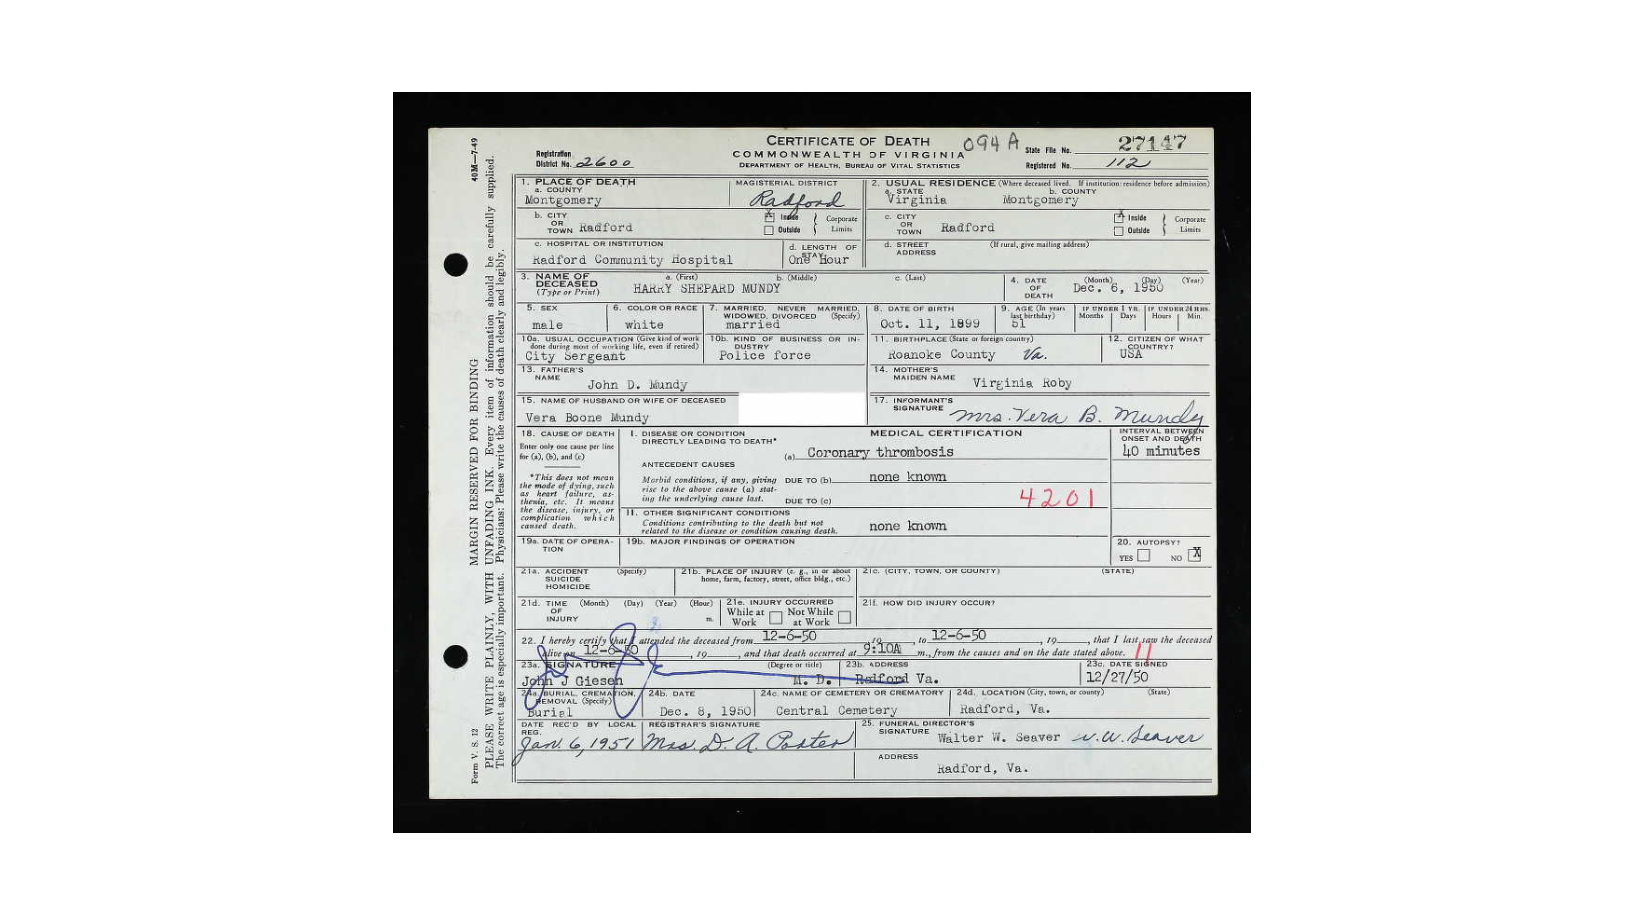 CERTIFICATE OF DEATH
COMMONWEALTH OF VIRGINIA
DEPARTMENT OF HEALTH, BUREAU OF VITAL STATISTICS
094 A
State File No. 27147
Registration District No. 2600
Registered No. 112
40M—7-49
1. PLACE OF DEATH
a. COUNTY
Montgomery
MAGISTERIAL DISTRICT
Radford
2. USUAL RESIDENCE (Where deceased lived. If institution: residence before admission)
a. STATE
Virginia
b. COUNTY
Montgomery
b. CITY OR TOWN Radford
X Inside
Outside
Corporate Limits
c. CITY OR TOWN Radford
X Inside
Outside
Corporate Limits
c. HOSPITAL OR INSTITUTION
Radford Community Hospital
d. LENGTH OF STAY
One Hour
d. STREET ADDRESS
(If rural, give mailing address)
3. NAME OF DECEASED (Type or Print)
a. (First) b. (Middle) c. (Last)
HARRY SHEPARD MUNDY
4. DATE OF DEATH
(Month) (Day) (Year)
Dec. 6, 1950
5. SEX
male
6. COLOR OR RACE
white
7. MARRIED, NEVER MARRIED, WIDOWED, DIVORCED (Specify)
married
8. DATE OF BIRTH
Oct. 11, 1899
9. AGE (In years last birthday)
51
IF UNDER 1 YR. Months Days
IF UNDER 24 HRS. Hours Min.
10a. USUAL OCCUPATION (Give kind of work done during most of working life, even if retired)
City Sergeant
10b. KIND OF BUSINESS OR INDUSTRY
Police force
11. BIRTHPLACE (State or foreign country)
Roanoke County Va.
12. CITIZEN OF WHAT COUNTRY?
USA
13. FATHER'S NAME
John D. Mundy
14. MOTHER'S MAIDEN NAME
Virginia Roby
15. NAME OF HUSBAND OR WIFE OF DECEASED
Vera Boone Mundy
17. INFORMANT'S SIGNATURE
Mrs. Vera B. Mundy
18. CAUSE OF DEATH
Enter only one cause per line for (a), (b), and (c)
*This does not mean the mode of dying, such as heart failure, asthenia, etc. It means the disease, injury, or complication which caused death.
MEDICAL CERTIFICATION
I. DISEASE OR CONDITION DIRECTLY LEADING TO DEATH*
(a) Coronary thrombosis
INTERVAL BETWEEN ONSET AND DEATH
40 minutes
ANTECEDENT CAUSES
Morbid conditions, if any, giving rise to the above cause (a) stating the underlying cause last.
DUE TO (b) none known
DUE TO (c)
4201
II. OTHER SIGNIFICANT CONDITIONS
Conditions contributing to the death but not related to the disease or condition causing death.
none known
19a. DATE OF OPERATION
19b. MAJOR FINDINGS OF OPERATION
20. AUTOPSY?
YES NO X
21a. ACCIDENT SUICIDE HOMICIDE (Specify)
21b. PLACE OF INJURY (e. g., in or about home, farm, factory, street, office bldg., etc.)
21c. (CITY, TOWN, OR COUNTY) (STATE)
21d. TIME OF INJURY (Month) (Day) (Year) (Hour) m.
21e. INJURY OCCURRED
While at Work Not While at Work
21f. HOW DID INJURY OCCUR?
22. I hereby certify that I attended the deceased from 12-6-50, 19, to 12-6-50, 19, that I last saw the deceased
alive on 12-6-50, 19, and that death occurred at 9:10A m., from the causes and on the date stated above. 11
23a. SIGNATURE (Degree or title)
John J Giesen M. D.
23b. ADDRESS
Radford Va.
23c. DATE SIGNED
12/27/50
24a. BURIAL, CREMATION, REMOVAL (Specify)
Burial
24b. DATE
Dec. 8, 1950
24c. NAME OF CEMETERY OR CREMATORY
Central Cemetery
24d. LOCATION (City, town, or county) (State)
Radford, Va.
DATE REC'D BY LOCAL REG.
Jan. 6, 1951
REGISTRAR'S SIGNATURE
Mrs. D. A. Porter
25. FUNERAL DIRECTOR'S SIGNATURE
Walter W. Seaver W. W. Seaver
ADDRESS
Radford, Va.
Form V. S. 12
MARGIN RESERVED FOR BINDING
PLEASE WRITE PLAINLY, WITH UNFADING INK. Every item of information should be carefully supplied.
The correct age is especially important. Physicians: Please write the causes of death clearly and legibly.